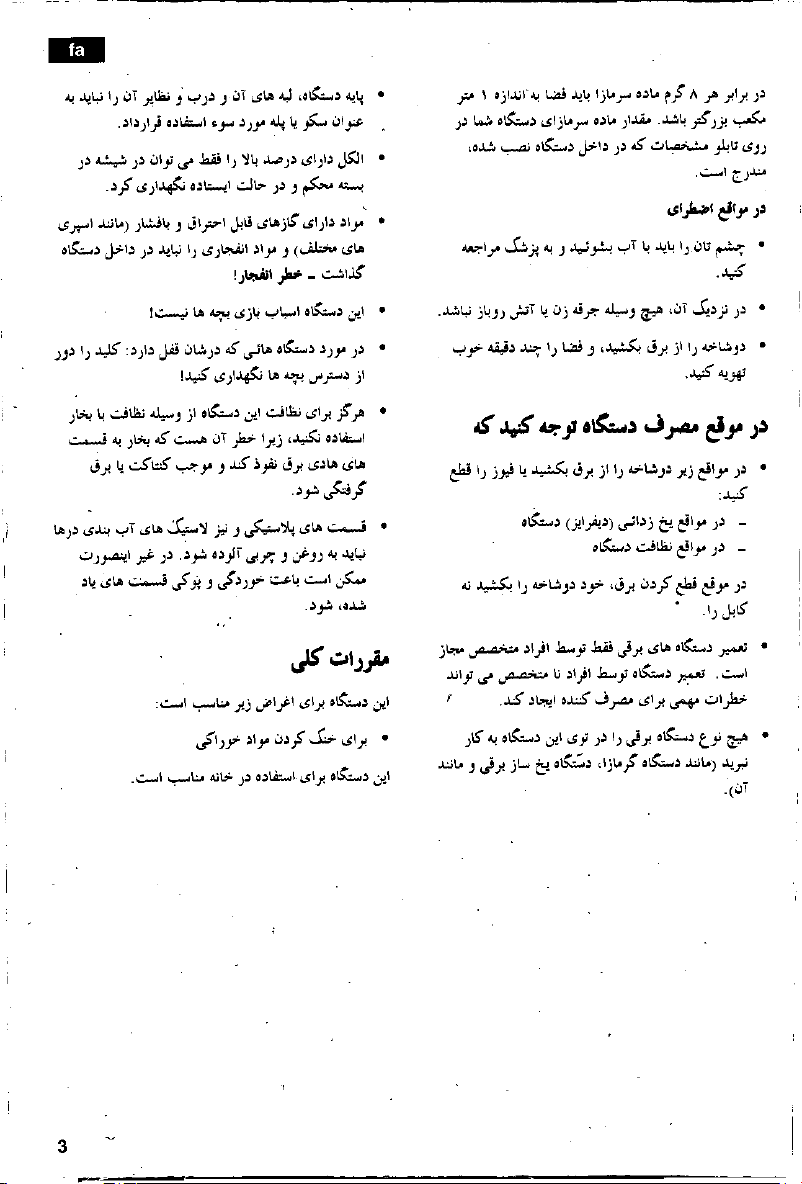 fa
در برابر هر ۸ گرم ماده سرمازا باید فضا به اندازه ۱ متر
مکعب بزرگتر باشد. مقدار ماده سرمازای دستگاه شما در
روی تابلو مشخصات که در داخل دستگاه نصب شده،
مندرج است.
در مواقع اضطرای
• چشم تان را باید با آب بشوئید و به پزشک مراجعه
کنید.
• در نزدیک آن، هیچ وسیله جرقه زن یا آتش روباز نباشد.
• دوشاخه را از برق بکشید، و فضا را چند دقیقه خوب
تهویه کنید.
در موقع مصرف دستگاه توجه کنید که
• در مواقع زیر دوشاخه را از برق بکشید یا فیوز را قطع
کنید:
– در مواقع یخ زدائی (دیفرایز) دستگاه
– در مواقع نظافت دستگاه
در موقع قطع کردن برق، خود دوشاخه را بکشید نه
کابل را.
• تعمیر دستگاه های برقی فقط توسط افراد متخصص مجاز
است. تعمیر دستگاه توسط افراد نا متخصص می تواند
خطرات مهمی برای مصرف کننده ایجاد کند.
• هیچ نوع دستگاه برقی را در توی این دستگاه به کار
نبرید (مانند دستگاه گرمازا، دستگاه یخ ساز برقی و مانند
آن).
• پایه دستگاه، لبه های آن و درب و نظایر آن را نباید به
عنوان سکو یا پله مورد سوء استفاده قرارداد.
• الکل دارای درصد بالا را فقط می توان در شیشه در
بسته محکم و در حالت ایستاده نگهداری کرد.
• مواد دارای گازهای قابل احتراق و بافشار (مانند اسپری
های مختلف) و مواد انفجاری را نباید در داخل دستگاه
گذاشت – خطر انفجار!
• این دستگاه اسباب بازی بچه ها نیست!
• در مورد دستگاه هائی که درشان قفل دارد: کلید را دور
از دسترس بچه ها نگهداری کنید!
• هرگز برای نظافت این دستگاه از وسیله نظافت با بخار
استفاده نکنید، زیرا خطر آن هست که بخار به قسمت
های هادی برق نفوذ کند و موجب کنتاکت یا برق
گرفتگی شود.
• قسمت های پلاستیکی و نیز لاستیک های آب بندی درها
نباید به روغن و چربی آلوده شود. در غیر اینصورت
ممکن است باعث خوردگی و پوکی قسمت های یاد
شده، شود.
مقررات کلی
این دستگاه برای اغراض زیر مناسب است:
• برای خنک کردن مواد خوراکی
این دستگاه برای استفاده در خانه مناسب است.
3